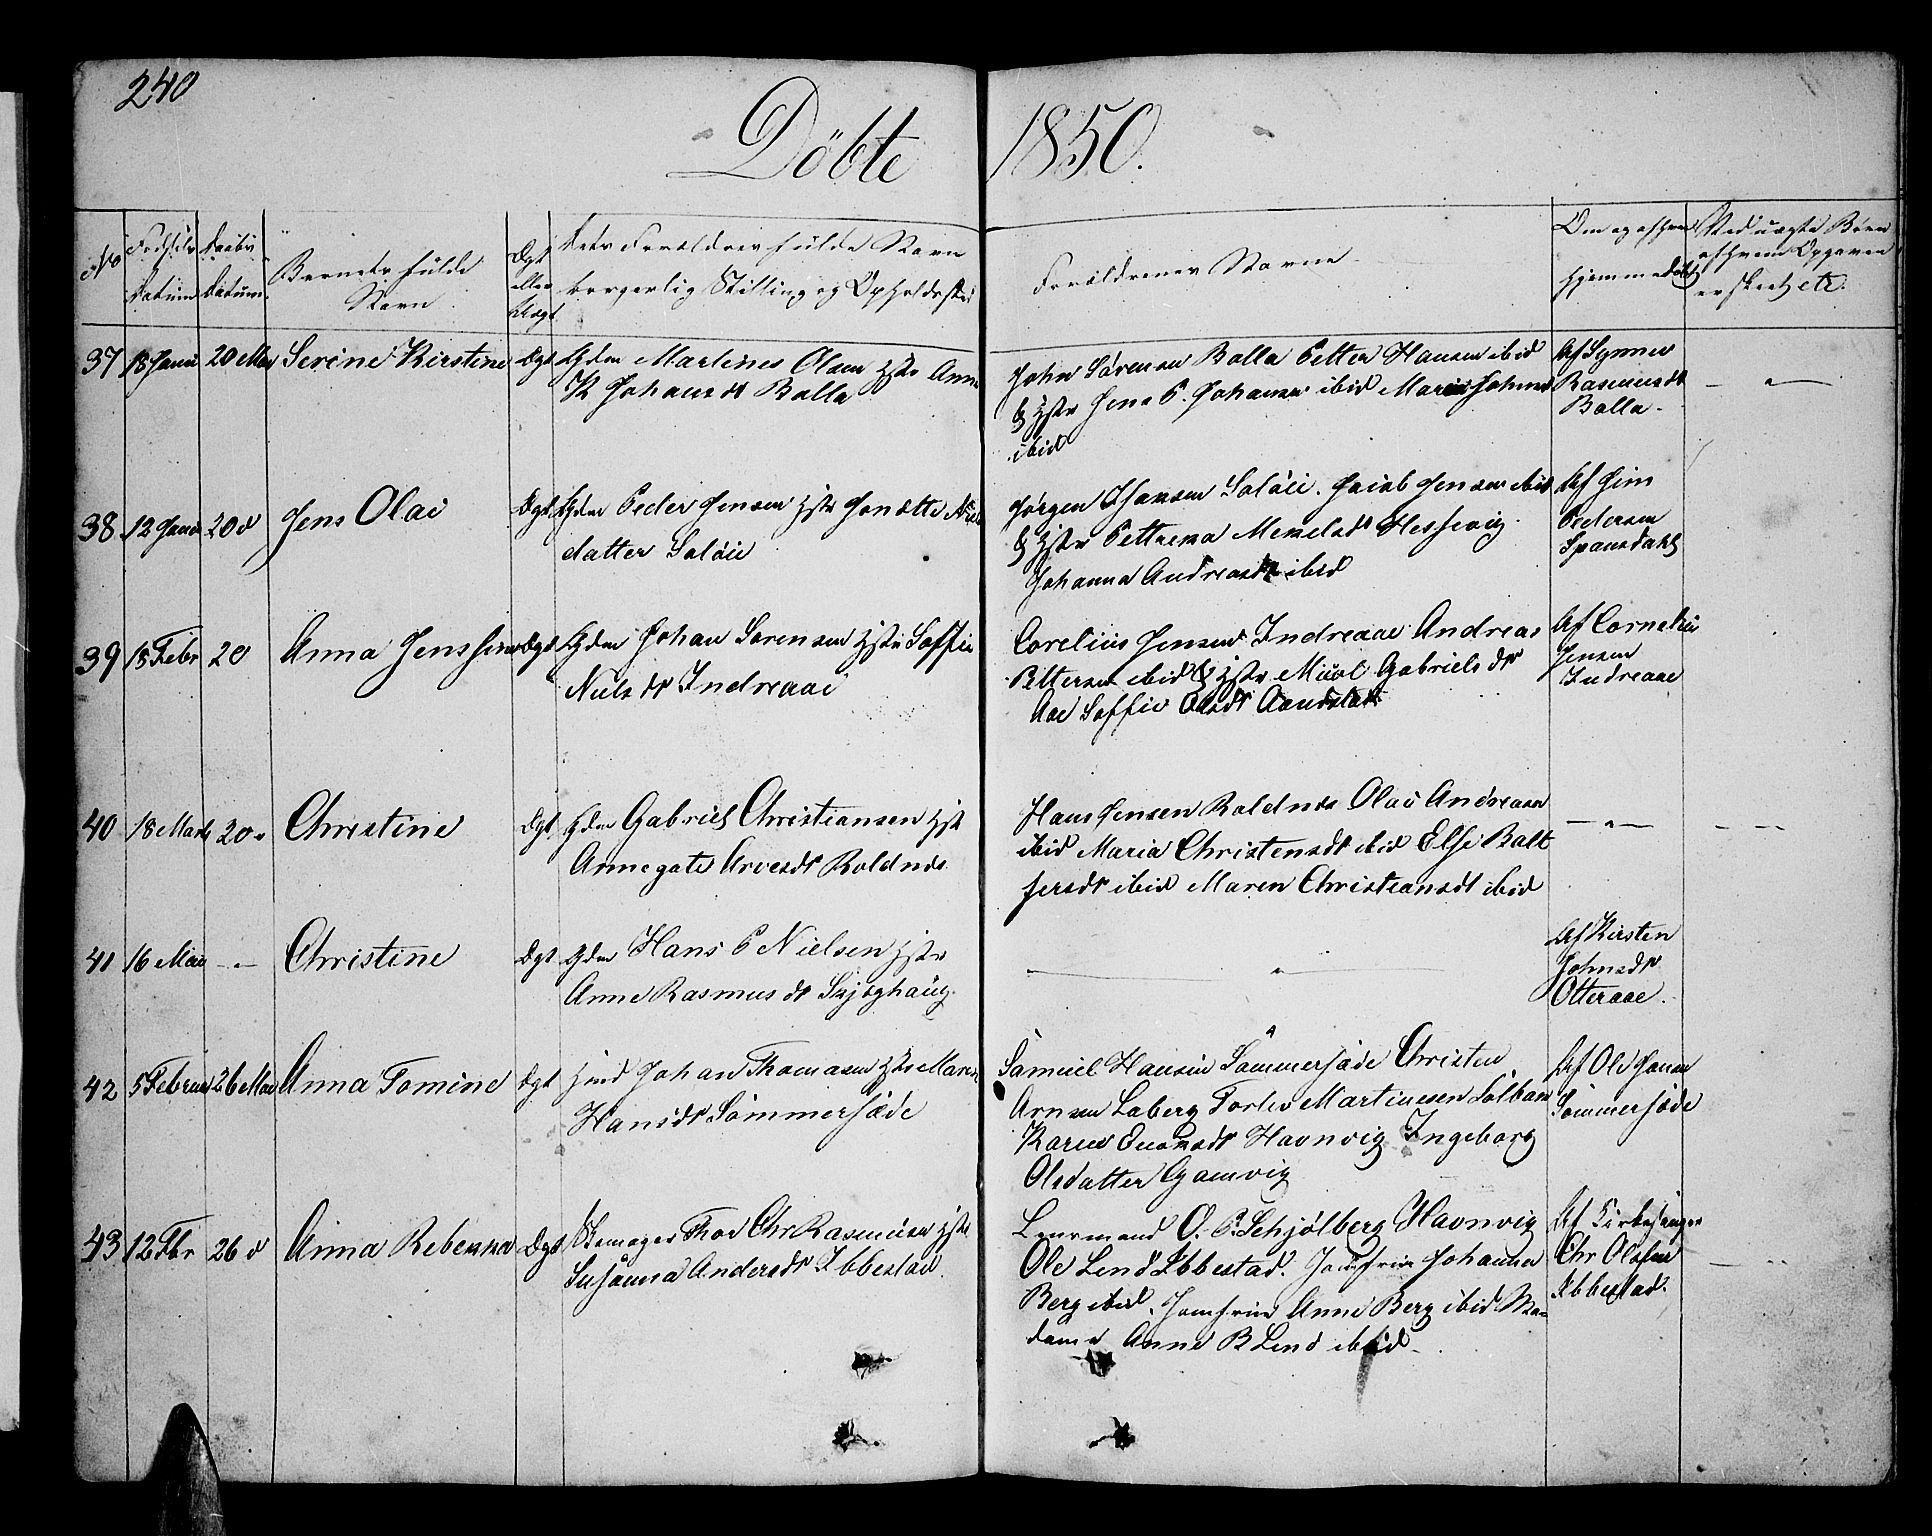 240
Döbte 1850.
No
Fødsels Datum
Daabs Datum
Barnets fulde Navn
Ægt eller Uægt
Dets Forældres fulde Navn
borgerlig Stilling og Opholdssted
Faddernes Navne
Om og af hvem hjemmedøbt
Ved uægte Børn af hvem Opgaven er skeet etc.
37 18 Janu 20 Mai Serine Kirstine Ægt Gdm Martines Olsen Hst Anne
K Johansdt Balla
John Sørensen Balla Petter Hansen ibid
& Hstr Jens P. Johansen ibid Maria Johnsd
ibid
Af Synneu
Rasmusdt
Balla.
38 12 Janu 20 d Jens Olai Ægt Gdm Peder Jensen Hstr Jonætte Niels
datter Saløie
Jørgen Hansen Saløii. Jacob Jensen ibid
& Hstr Pettrena Mekelsdt Hessevig.
Johanna Andreasdt ibid
Af Jens
Pedersen
Spansdahl
39 18 Febr 20 Anna Jenssine Ægt Gdm Johan Sørensen Hstr Soffie
Nielsdt Indreaae
Corelius Jensen Indreaae Andreas
Pettersen ibid & Hstr Gabrielsdt
Aae Soffie Olsdt Aandstad
Af Cornelius
Jensen
Indreaae
40 18 Marts 20 " Christine Ægt Gdm Gabriel Christiansen Hst
Annegate Arvesdt Roldnds
Hans Jensen Roldnds Olai Andreasen
ibid Maria Christensdt ibid Else Balt
sersdt ibid Maren Christiansdt ibid
— " —
41 16 Mai — " — Christine Ægt Gdm Hans P Nielsen Hstr
Anne Rasmusdt Skjøghaug.
— " —
Af Kirsten
Johnsdt
Otteraae.
42 5 Februar 26 Mai Anna Tomine Ægt Hmd Johan Thomasen Hstr Maren
Hansdt Sømmersæde
Samuel Hansen Sømmersæde Christen
Arnsen Laberg Torlev Martinesen
Karen Enoksdt Havnvig Ingeborg
Olsdatter Gamvig
Af Ole Hansen
Sømmersæde
43 12 Febr 26 d Anna Rebekka Ægt Skomager Thor Chr Rasmusen Hst
Susanna Andersdt Ibbestad.
Lensmand O. P. Schjølberg Havnvig
Ole Lend Ibbestad. Jomfrue Johanna
Berg ibid. Jomfrue Anne Berg ibid Ma-
dame Anne B Lend ibid.
Af Kirkesanger
Chr Olsen
Ibbestad.